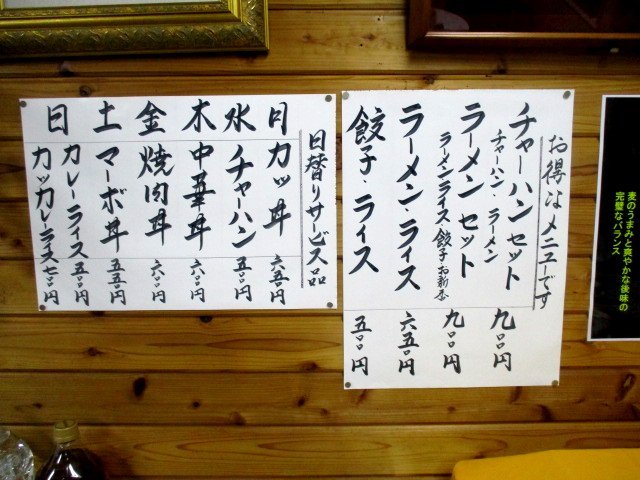 お得なメニューです
チャーハンセット 九〇〇円
チャーハン・ラーメン
ラーメンセット 九〇〇円
ラーメンライス餃子お新香
ラーメン・ライス 六五〇円
餃子・ライス 五〇〇円
日替りサービス品
月 カツ丼 六五〇円
水 チャーハン 五〇〇円
木 中華丼 六〇〇円
金 焼肉丼 六〇〇円
土 マーボ丼 五五〇円
日 カレーライス 五〇〇円
カツカレーライス 七〇〇円
麦のうまみと爽やかな後味の
完璧なバランス